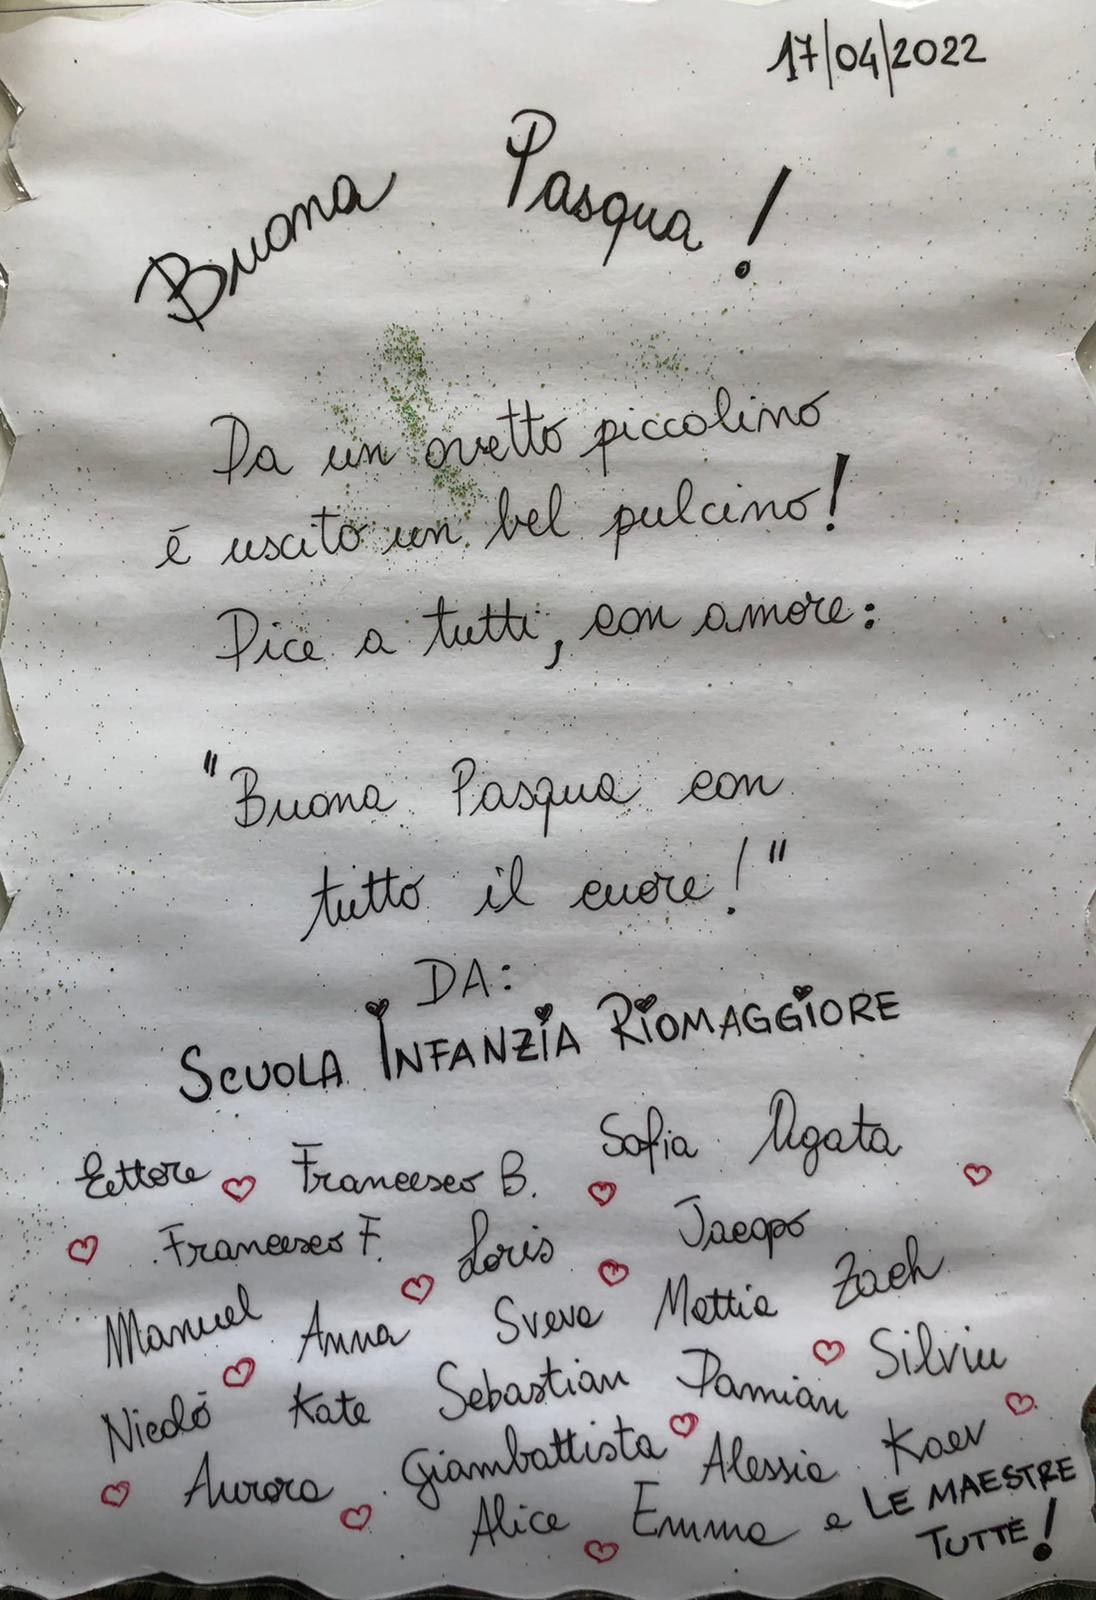 17/04/2022
Buona Pasqua!
Da un ovetto piccolino
è uscito un bel pulcino!
Dice a tutti, con amore:
"Buona Pasqua con
tutto il cuore!"
DA:
SCUOLA INFANZIA RIOMAGGIORE
Ettore Francesco B. Sofia Agata
Francesco F. Loris Jacopo
Manuel Anna Sveva Mattia Zach
Nicolò Kate Sebastian Damian Silviu
Aurora Giambattista Alessia Kaev
Alice Emma e LE MAESTRE
TUTTE!